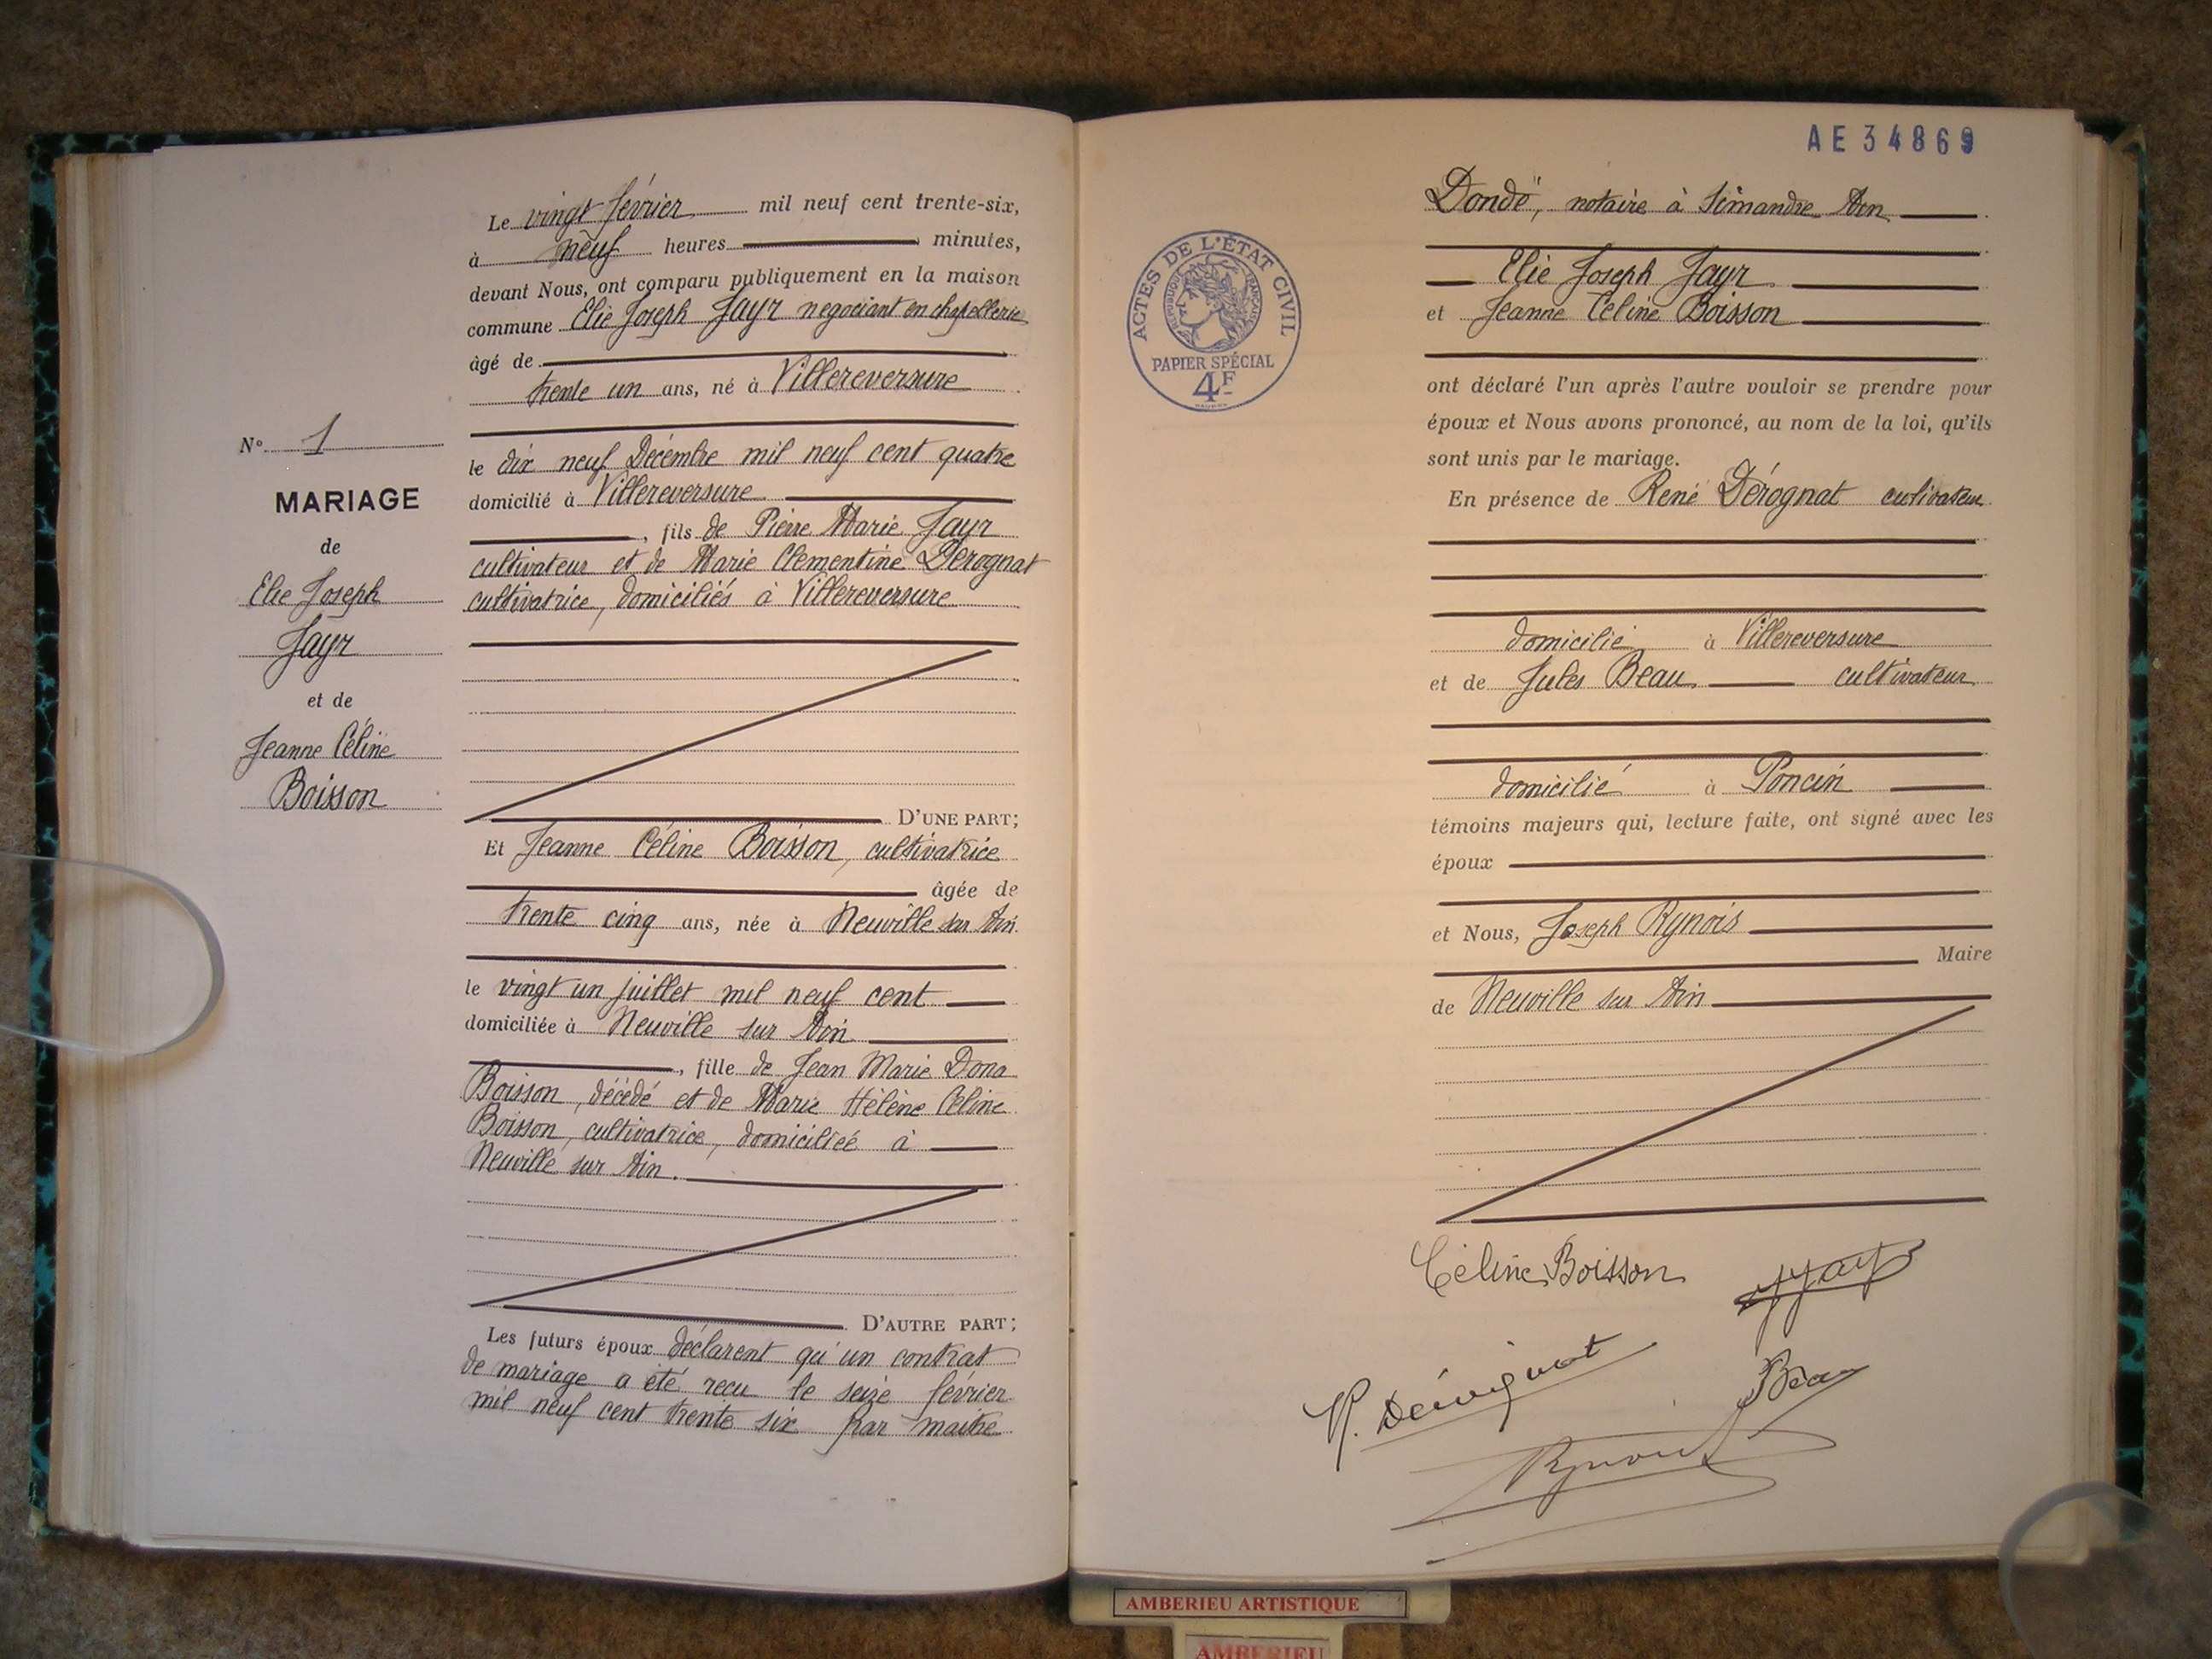 N° 1
MARIAGE
de
Elie Joseph
Jayr
et de
Jeanne Céline
Boisson
Le vingt février mil neuf cent trente-six,
à neuf heures minutes,
devant Nous, ont comparu publiquement en la maison
commune Elie Joseph Jayr negociant en chapellerie
âgé de
trente un ans, né à Villereversure
le dix neuf Décembre mil neuf cent quatre
domicilié à Villereversure
, fils de Pierre Marie Jayr
cultivateur et de Marie Clementine Dérognat
cultivatrice, domiciliés à Villereversure
D'UNE PART;
Et Jeanne Céline Boisson, cultivatrice
âgée de
trente cinq ans, née à Neuville sur Ain
le vingt un juillet mil neuf cent
domiciliée à Neuville sur Ain
, fille de Jean Marie Dona
Boisson, décédé et de Marie Hélène Céline
Boisson, cultivatrice, domiciliée à
Neuville sur Ain.
D'AUTRE PART;
Les futurs époux déclarent qu'un contrat
de mariage a été reçu le seize février
mil neuf cent trente six par maitre
AE 34869
ACTES DE L'ÉTAT CIVIL
RÉPUBLIQUE FRANÇAISE
PAPIER SPÉCIAL
4F
Dondé, notaire à Simandre Ain
Elie Joseph Jayr
et Jeanne Céline Boisson
ont déclaré l'un après l'autre vouloir se prendre pour
époux et Nous avons prononcé, au nom de la loi, qu'ils
sont unis par le mariage.
En présence de René Dérognat cultivateur
domicilié à Villereversure
et de Jules Beau cultivateur
domicilié à Poncin
témoins majeurs qui, lecture faite, ont signé avec les
époux
et Nous, Joseph Rynois
Maire
de Neuville sur Ain
Céline Boisson
Jayr
R. Dérognat
Beau
Rynois
AMBERIEU ARTISTIQUE
AMBERIEU